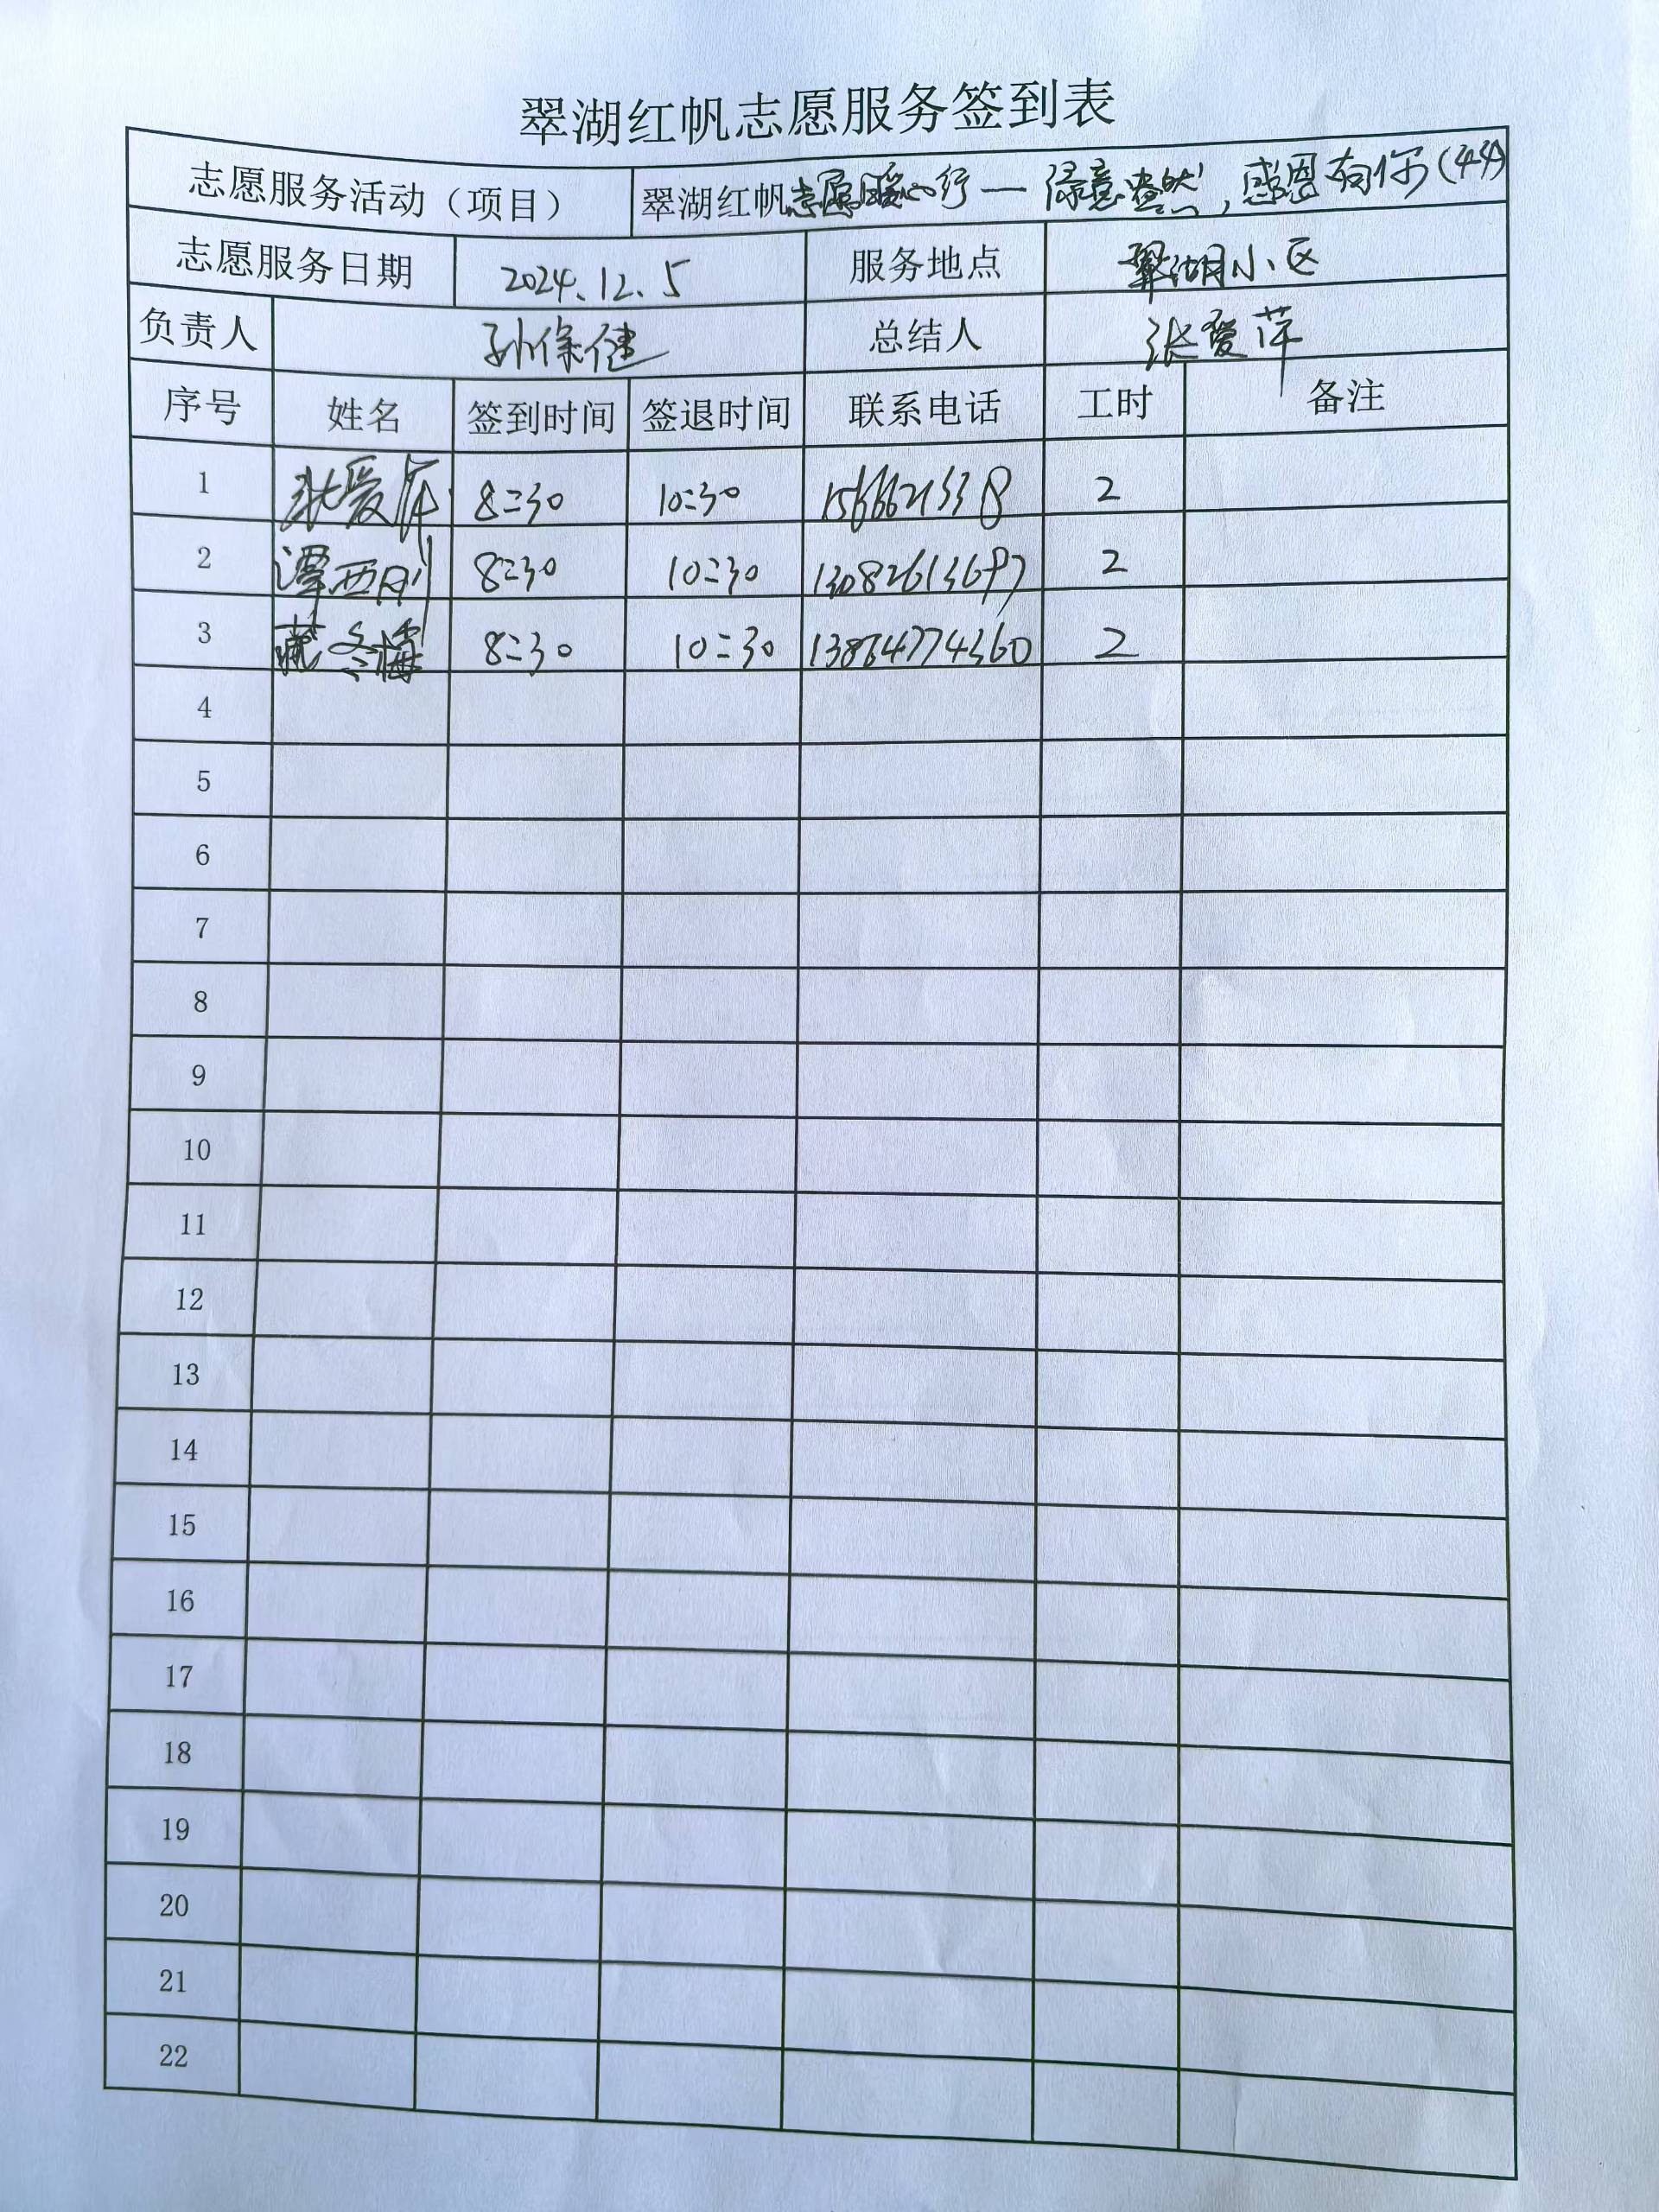 翠湖红帆志愿服务签到表
志愿服务活动（项目） 翠湖红帆志愿暖心行一绿意盎然，感恩有你(44)
志愿服务日期 2024.12.5 服务地点 翠湖小区
负责人 孙保健 总结人 张爱萍
序号 姓名 签到时间 签退时间 联系电话 工时 备注
1 张爱萍 8:30 10:30 2
2 谭西刚 8:30 10:30 2
3 臧冬梅 8:30 10:30 13864774360 2
4
5
6
7
8
9
10
11
12
13
14
15
16
17
18
19
20
21
22